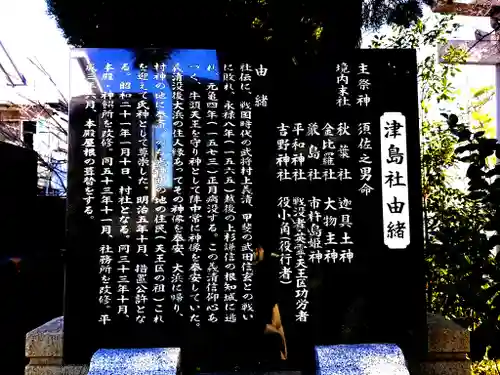 津島社由緒
主祭神　須佐之男命
境内末社　秋葉社　迦具土神
金比羅社　大物主神
厳島社　市杵島姫神
平和神社　戦没者英霊天王区功労者
吉野神社　役小角（役行者）
由緒
社伝に、戦国時代の武将村上義清、甲斐の武田信玄との戦い
に敗れ、永禄八年（一五六五）越後の上杉謙信の根知城に逃
れ、元亀四年（一五七三）五月病没する。この義清信仰心あ
つく、牛頭天王を守り神として陣中常に神像を奉安していた。
義清没後大浜の住人縁あってその神像を奉安、大浜に帰り、
村神の地に奉
の地の住民（天王区の祖）これ
を迎えて氏神として
した。明治五年十月、据置公許とな
る。昭和二十一年一月十日、村社となる。同三十三年十月、
本殿・
を改修。同五十三年十一月、社務所を改修。平
成三
月、本殿屋根の葺替をする。